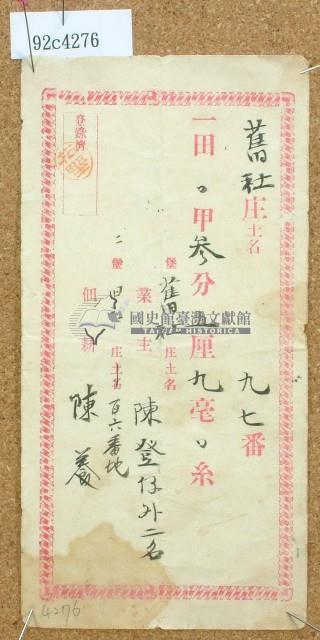 92c4276
舊社庄土名 九七番
一田 甲參分 厘九毫 糸
堡舊社庄土名
業主 陳登仔外二名
二堡 庄土名百六番地
佃耕人 陳養
登錄濟
國史館臺灣文獻館
TAIWAN HISTORICA
4276